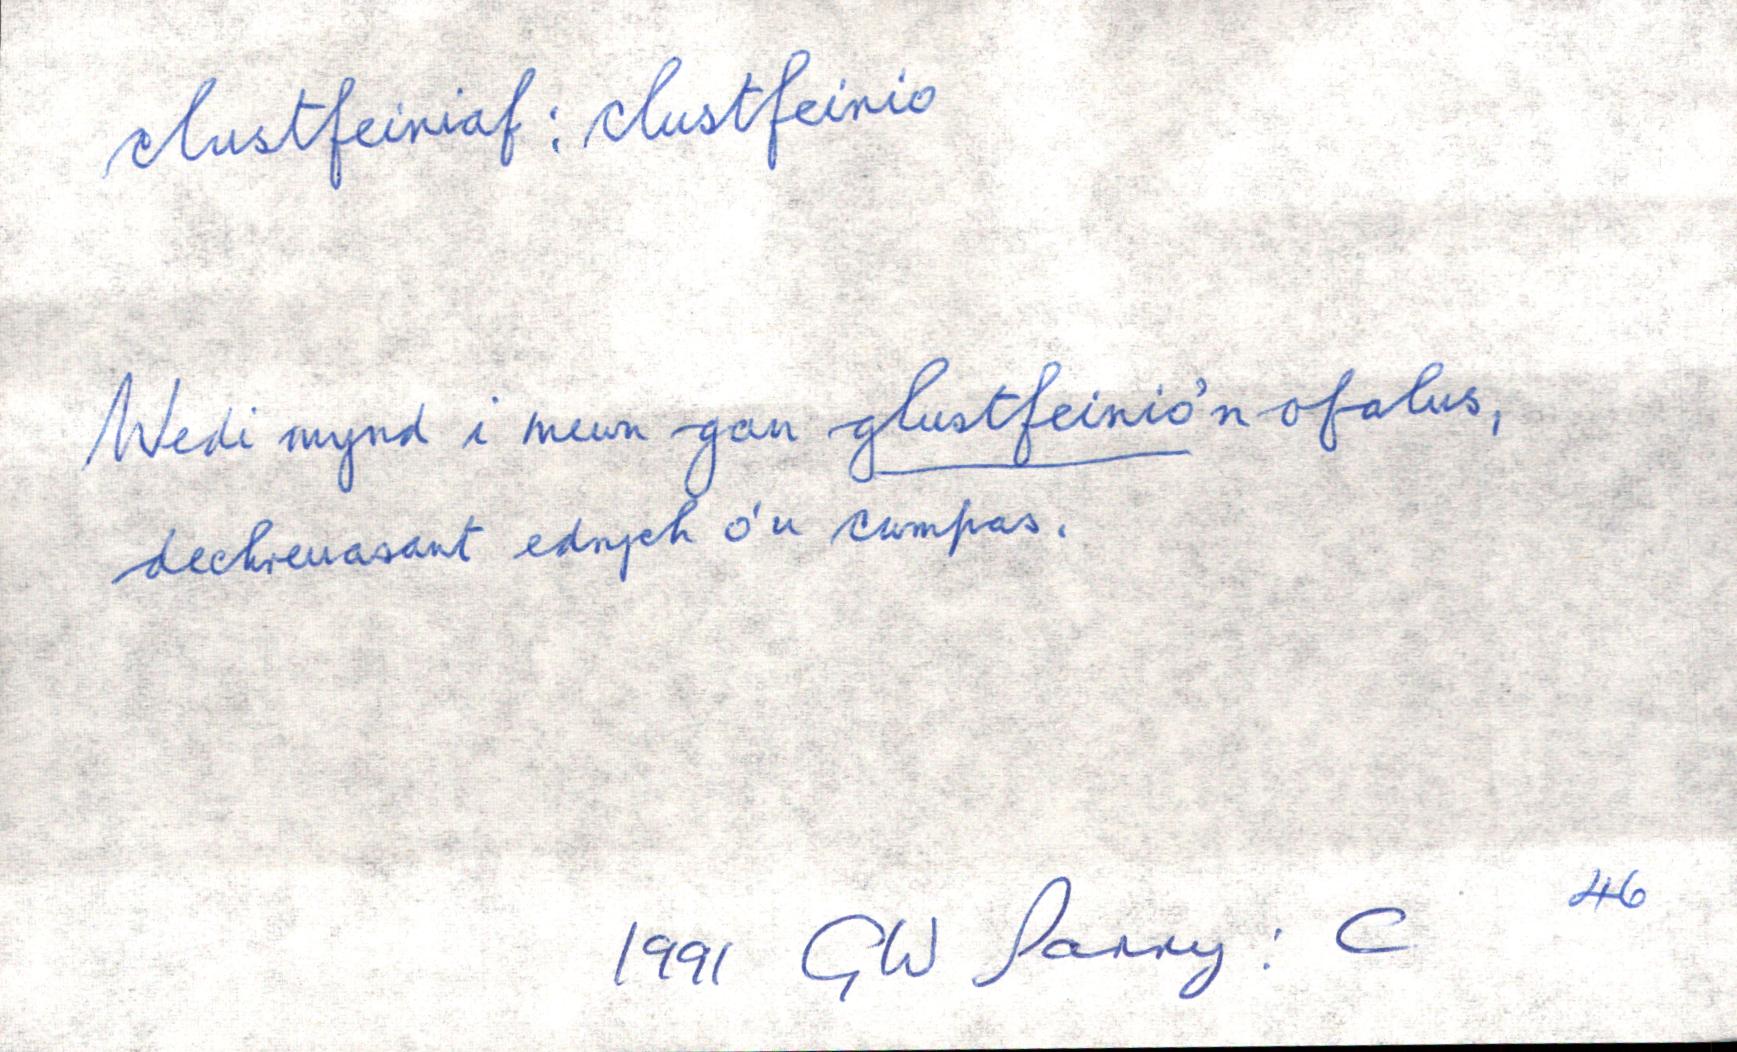 clustfeiniaf : clustfeinio
Wedi mynd i mewn gan glustfeinio'n ofalus,
dechreuasant edrych o'u cwmpas.
1991 GW Parry : C 46